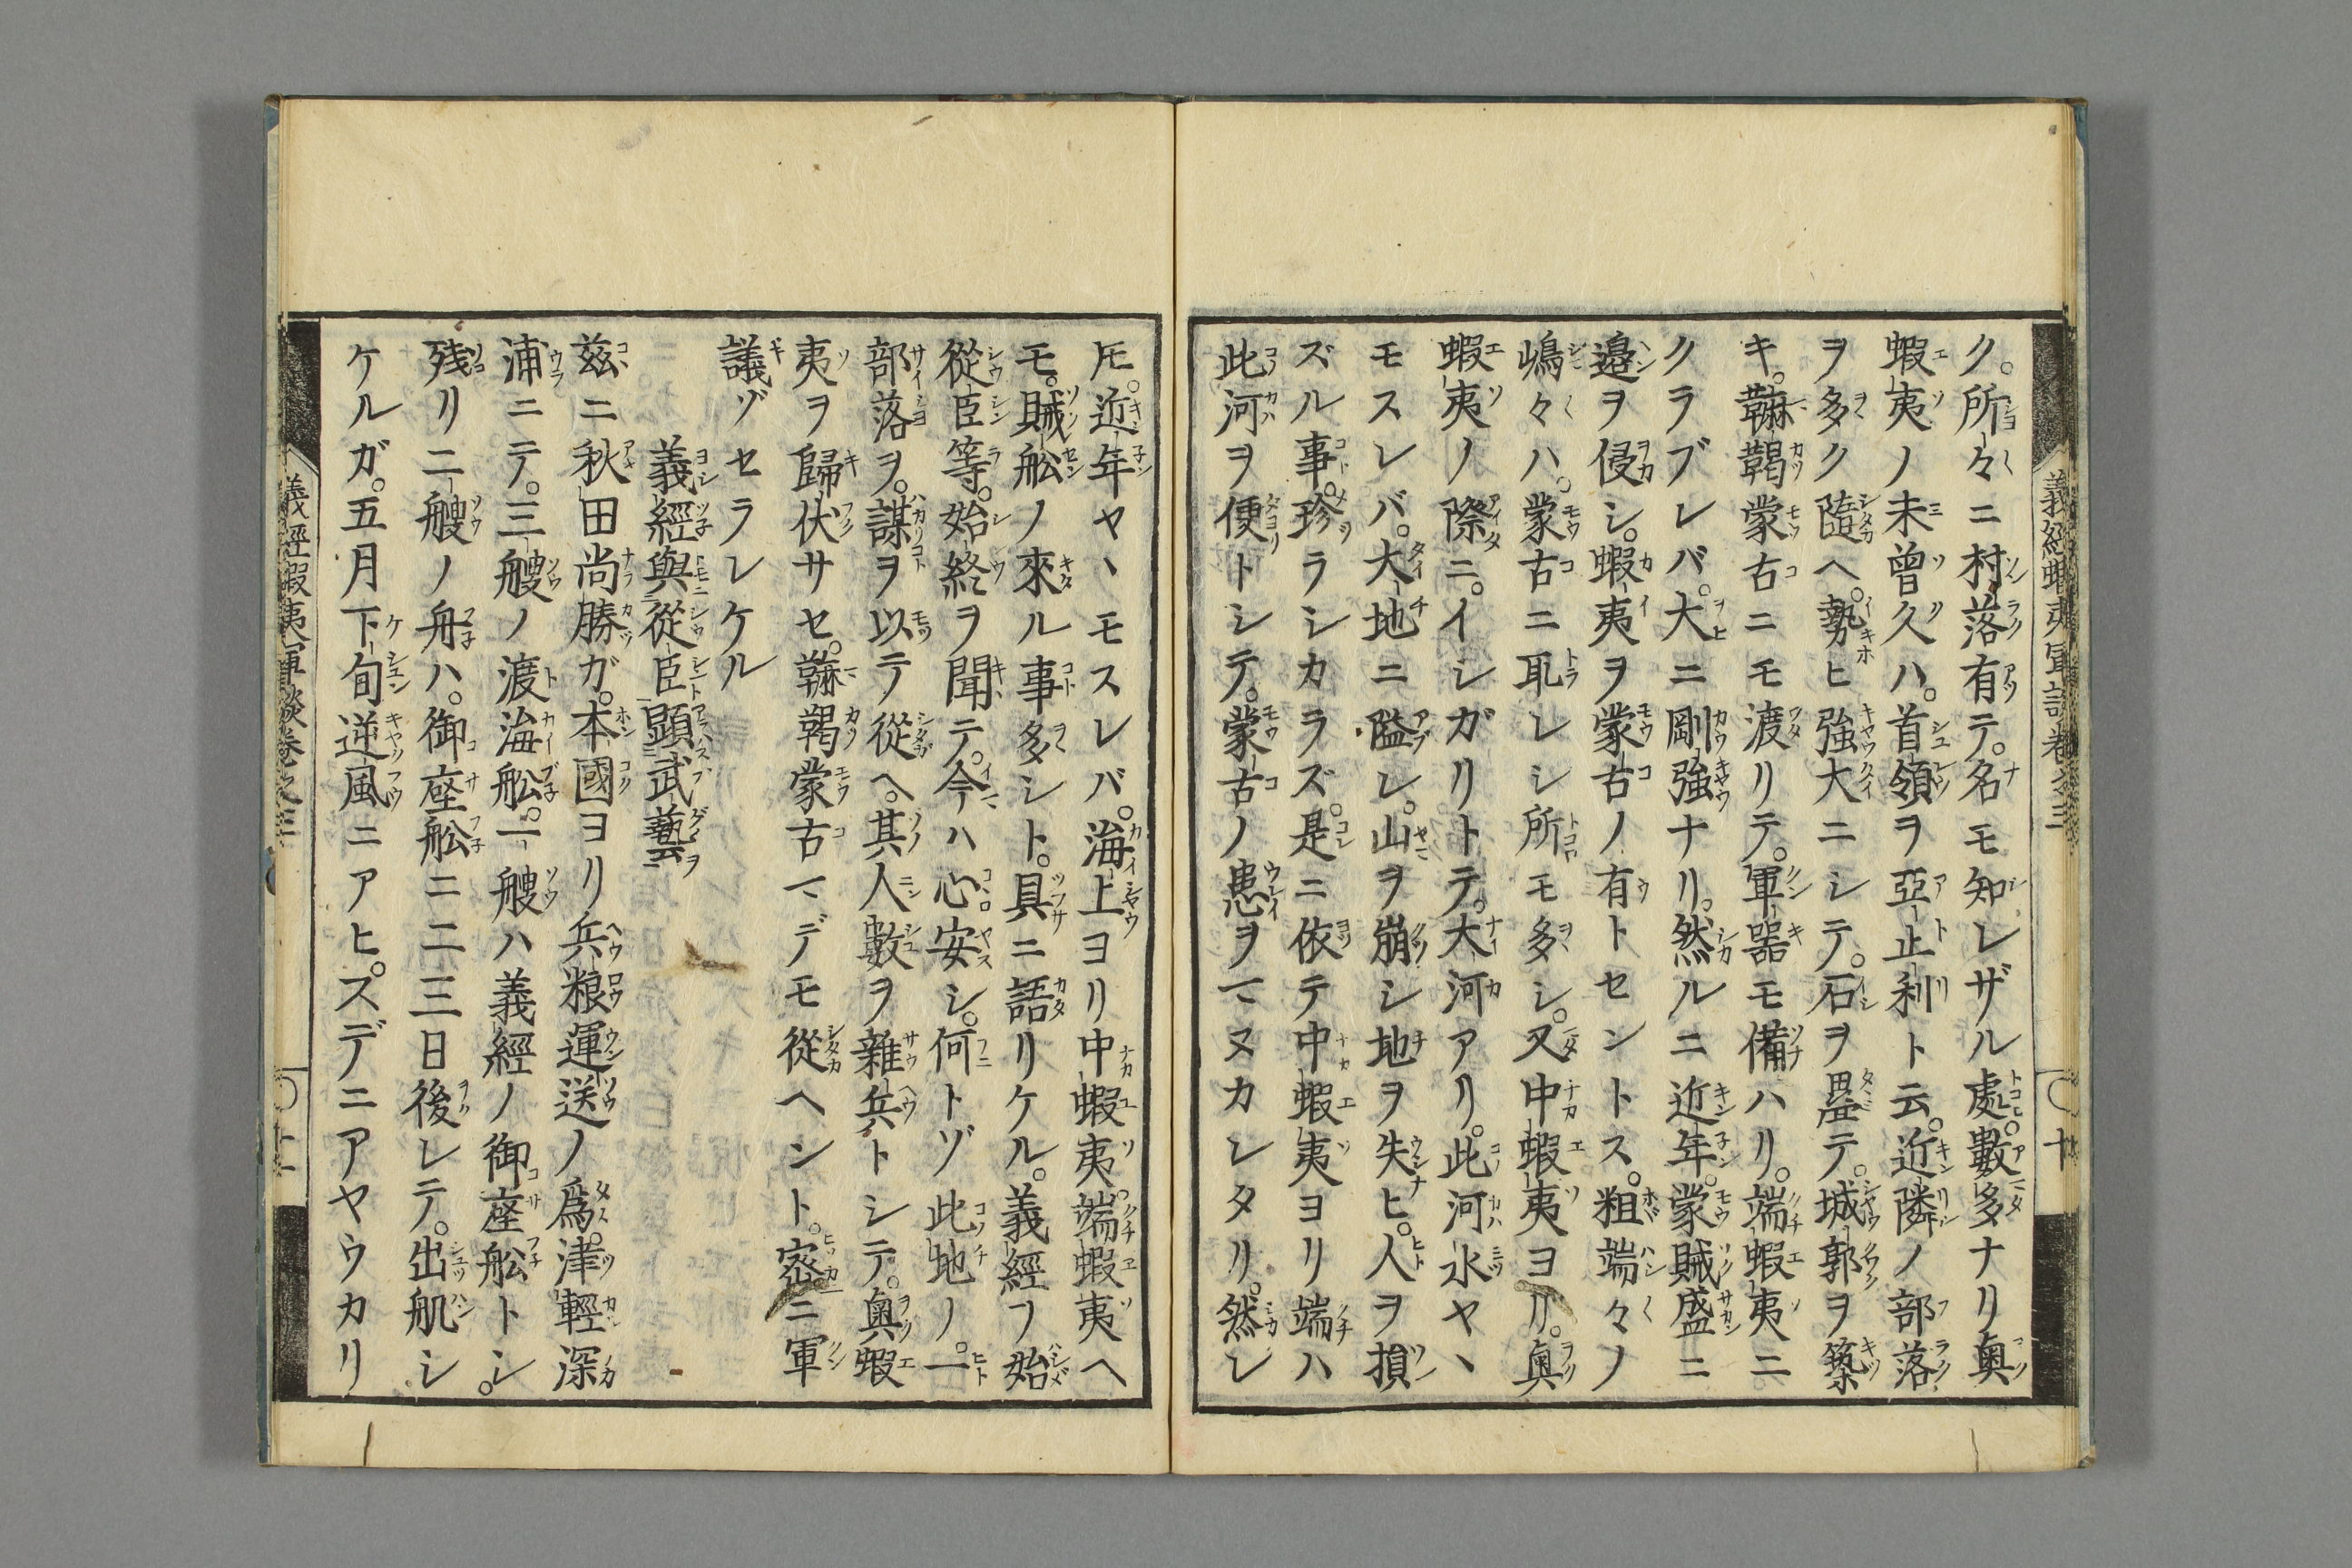 ク。所々ニ村落有テ。名モ知レザル處。數多ナリ奥
蝦夷ノ未曾久ハ。首領ヲ亞止利ト云。近隣ノ部落
ヲ多ク隨へ。勢ヒ強大ニシテ。石ヲ疊テ。城郭ヲ築
キ。靺鞨蒙古ニモ渡リテ。軍噐モ備ハリ。端蝦夷ニ
クラブレバ。大ニ剛強ナリ。然ルニ近年。蒙賊盛ニ
邉ヲ侵シ。蝦夷ヲ蒙古ノ有トセントス。粗端々ノ
嶋々ハ。蒙古ニ耴レシ所モ多シ。又中蝦夷ヨリ。奥
蝦夷ノ際ニ。イシガリトテ。大河アリ。此河水ヤヽ
モスレバ。大地ニ隘レ。山ヲ崩シ地ヲ失ヒ。人ヲ損
ズル事。珍ラシカラズ。是ニ依テ中蝦夷ヨリ端ハ
此河ヲ便トシテ。蒙古ノ患ヲマヌカレタリ。然レ
義經蝦夷軍談卷之三
〇十
𪜈。近年ヤヽモスレバ。海上ヨリ中蝦夷。端蝦夷へ
モ。賊舩ノ來ル事多シト。具ニ語リケル。義經フ始
從臣等。始終ヲ聞テ。今ハ心安シ。何トゾ此地ノ。一
部落ヲ。謀ヲ以テ從へ。其人數ヲ雜兵トシテ。奥蝦
夷ヲ歸伏サセ。靺鞨蒙古マデモ從ヘント。密ニ軍
議ゾセラレケル
義經與從臣顕武藝
茲ニ秋田尚勝ガ。本國ヨリ兵粮運送ノ爲。津輕深
浦ニテ。三艘ノ渡海舩。一艘ハ義經ノ御座舩トシ。
残リニ艘ノ舟ハ。御座舩ニ二三日後レテ。出舤シ
ケルガ。五月下旬逆風ニアヒ。スデニアヤウカリ
義經蝦夷軍談卷之三
〇十一